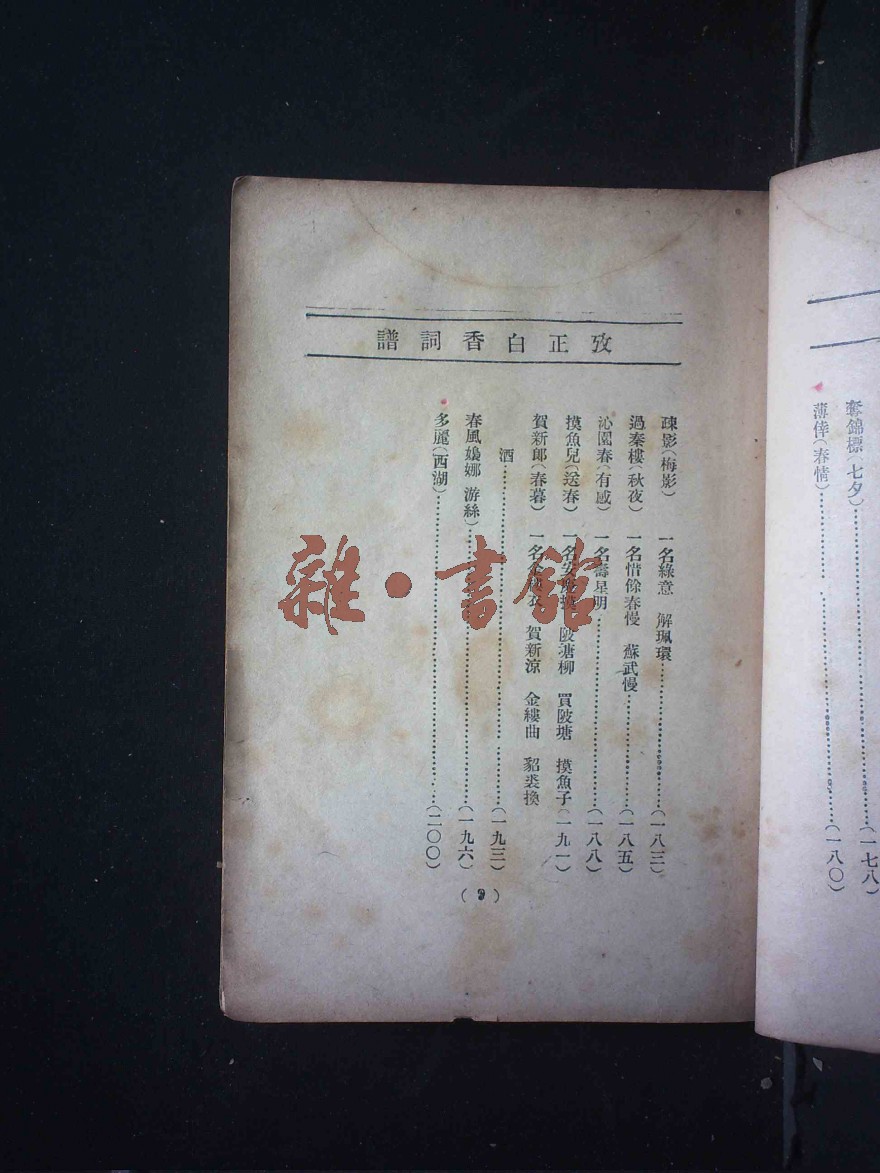 奪錦標(七夕)……(一七八)
薄倖(春情)……(一八〇)
攷正白香詞譜
疎影(梅影) 一名綠意 解珮環……(一八三)
過秦樓(秋夜) 一名惜餘春慢 蘇武慢……(一八五)
沁園春(有感) 一名壽星明……(一八八)
摸魚兒(送春) 一名安慶摸 陂塘柳 買陂塘 摸魚子(一九一)
賀新郎(春暮) 一名金縷衣 賀新涼 金縷曲 貂裘換
酒……(一九三)
春風嬝娜 游絲)……(一九六)
多麗(西湖)……(二〇〇)
(9)
雜·書館